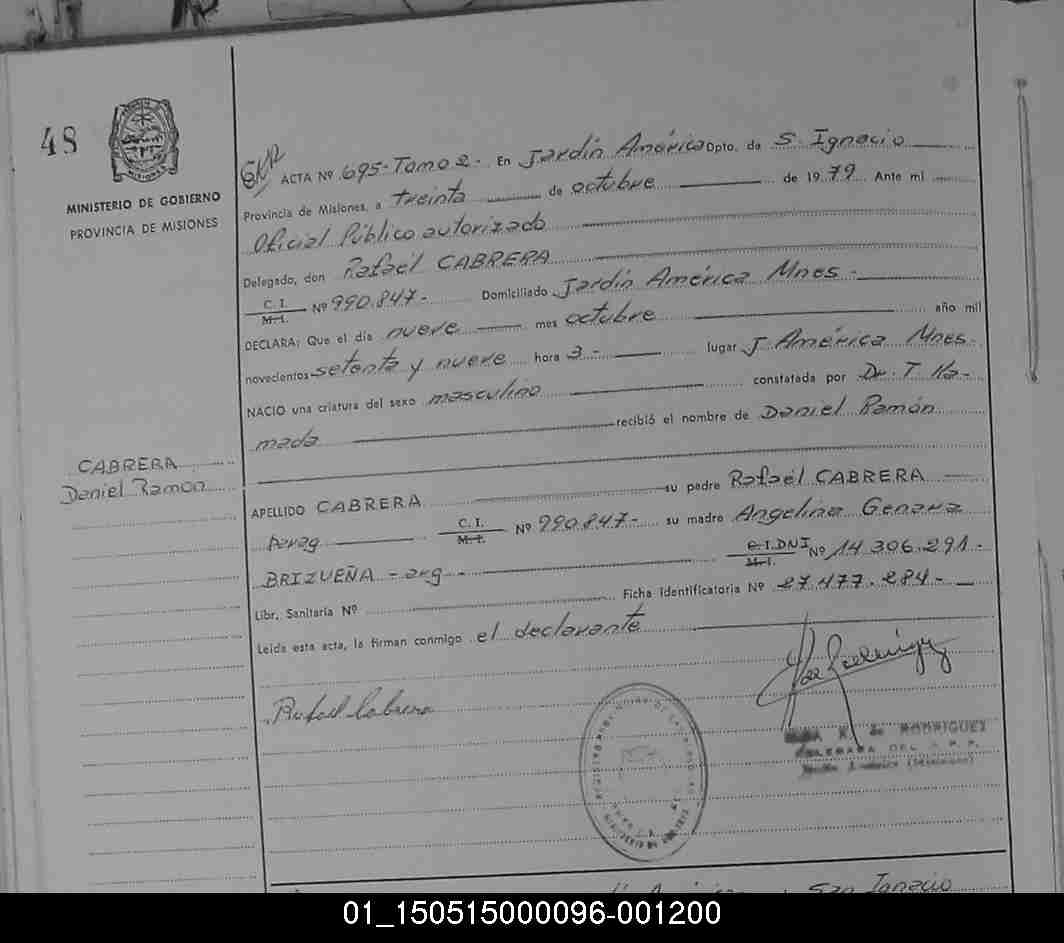 48
MINISTERIO DE GOBIERNO
PROVINCIA DE MISIONES
ACTA Nº 695-Tomo 2- En Jardín América Dpto. de S. Ignacio
Provincia de Misiones, a treinta de octubre de 1979. Ante mi
Oficial Público autorizado
Delegado, don Rafaél CABRERA
C. I.
M. I. Nº 990.847- Domiciliado Jardín América Mnes-
DECLARA: Que el día nueve mes octubre año mil
novecientos setenta y nueve hora 3- lugar J América Mnes.
NACIO una criatura del sexo masculino constatada por Dr. T Ha-
mada recibió el nombre de Daniel Ramón
CABRERA
Daniel Ramon
APELLIDO CABRERA su padre Rafaél CABRERA
C. I.
M. I. Nº 990.847- su madre Angelina
BRIZUEÑA - arg -
C. I. DNI
M. I. Nº 14 306.291-
Libr. Sanitaria Nº Ficha Identificatoria Nº 27.477.284-
Leída esta acta, la firman conmigo el declarante
Rafael Cabrera
RODRIGUEZ
DELEGADA DEL
San Ignacio
01_150515000096-001200